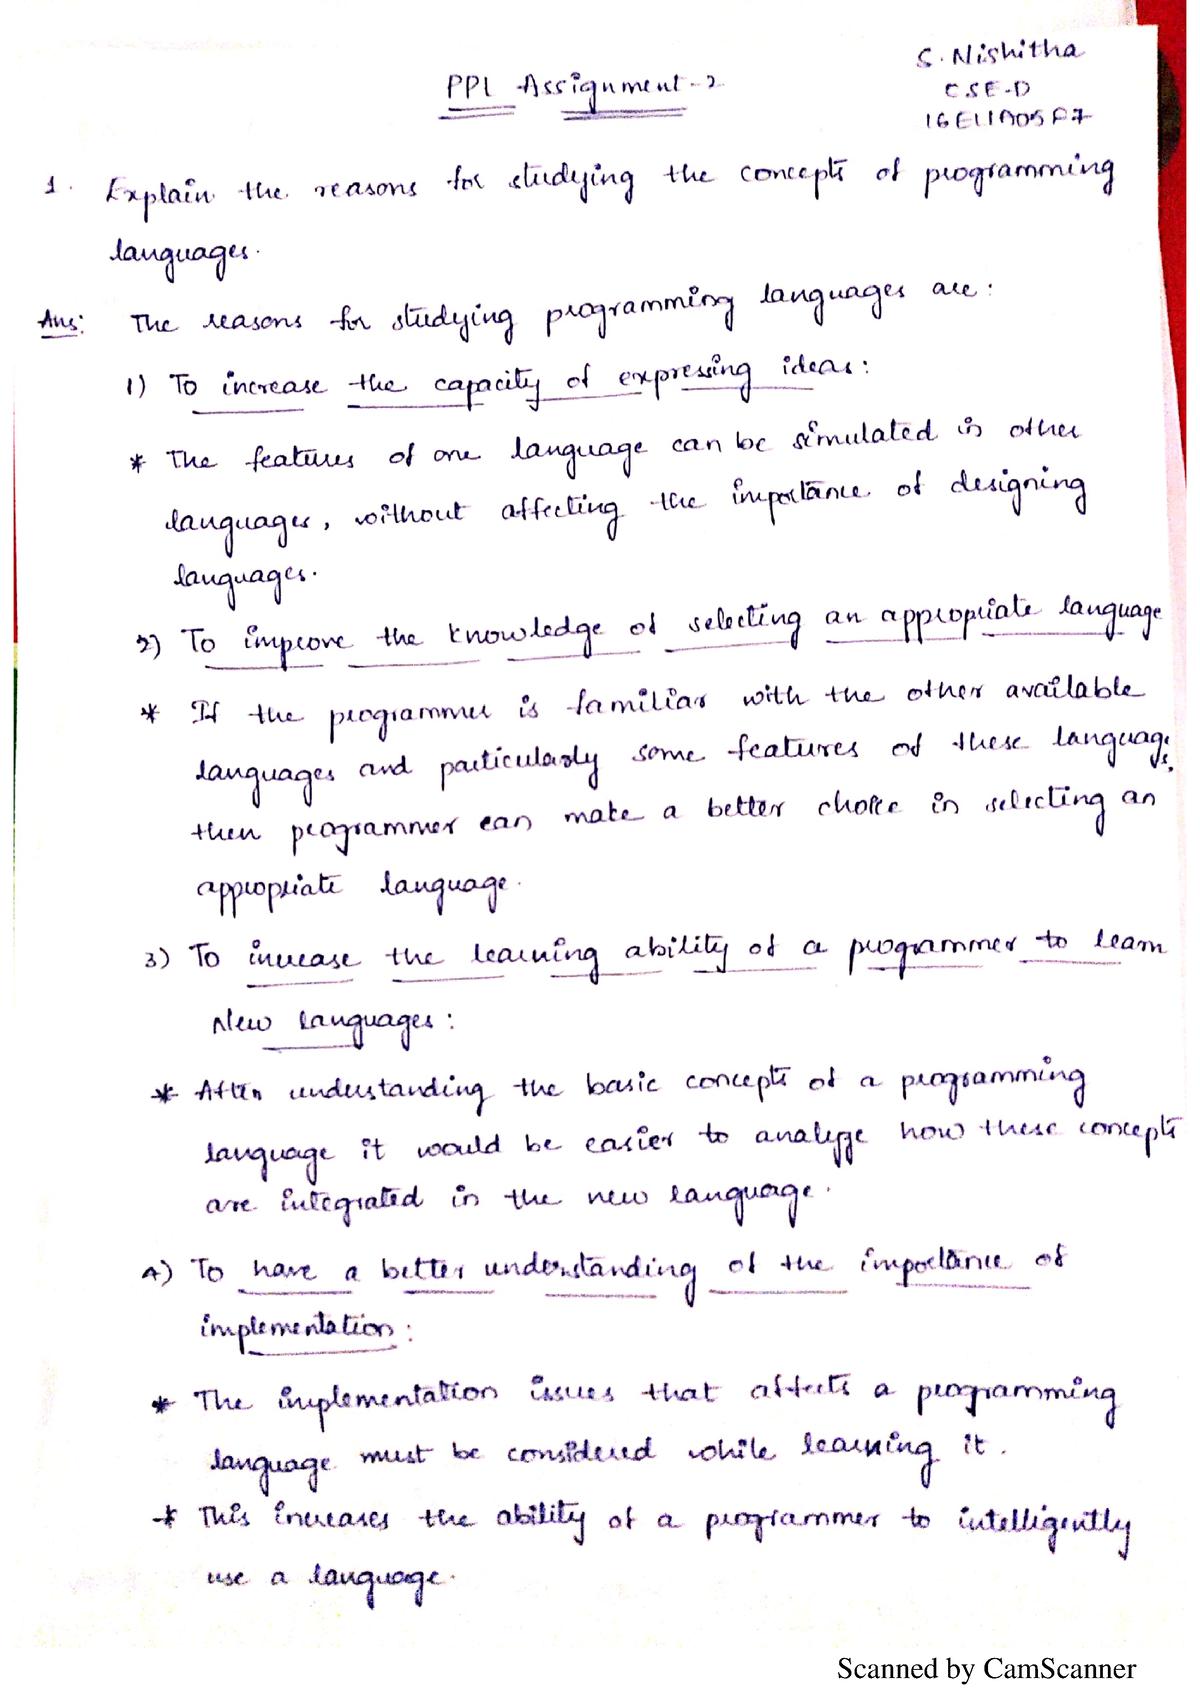 S. Nishitha
PPL Assignment-2
CSE-D
16E11A05F7
1. Explain the reasons for studying the concepts of programming
languages.
Ans: The reasons for studying programming languages are:
1) To increase the capacity of expressing ideas:
* The features of one language can be simulated in other
languages, without affecting the importance of designing
languages.
2) To improve the knowledge of selecting an appropriate language
* If the programmer is familiar with the other available
languages and particularly some features of these languages,
then programmer can make a better choice in selecting an
appropriate language.
3) To increase the learning ability of a programmer to learn
New languages:
* After understanding the basic concepts of a programming
language it would be easier to analyze how these concepts
are integrated in the new language.
4) To have a better understanding of the importance of
implementation:
* The implementation issues that affects a programming
language must be considered while learning it.
* This increases the ability of a programmer to intelligently
use a language.
Scanned by CamScanner